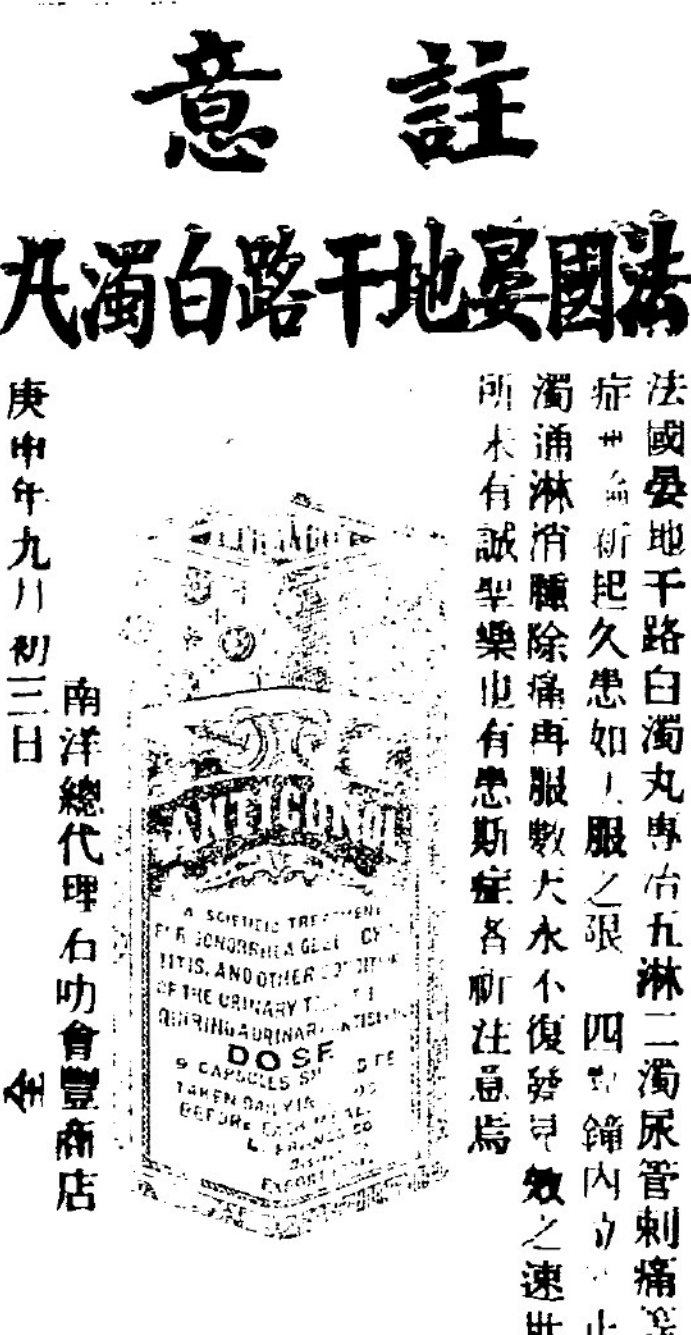 註意
法國晏地干路白濁丸
法國晏地干路白濁丸專治五淋二濁尿管刺痛
症 新起久患如 服之 四 鐘內 止
濁通淋消腫除痛再服數天永不復發見效之速世
所未有誠聖藥也有患斯症者祈注意焉
ANTIGONOL
A SCIETIFIC TREATMENT
FOR GONORRHEA GLEET CYS
TITIS, AND OTHER CONDITION
OF THE URINARY
QUIRING A URINARY ANTISEPTIC
DOSE
9 CAPSULES
TAKEN DAILY IN
BEFORE EACH MEAL
南洋總代理石叻會豐商店
庚申年九月初三日
全